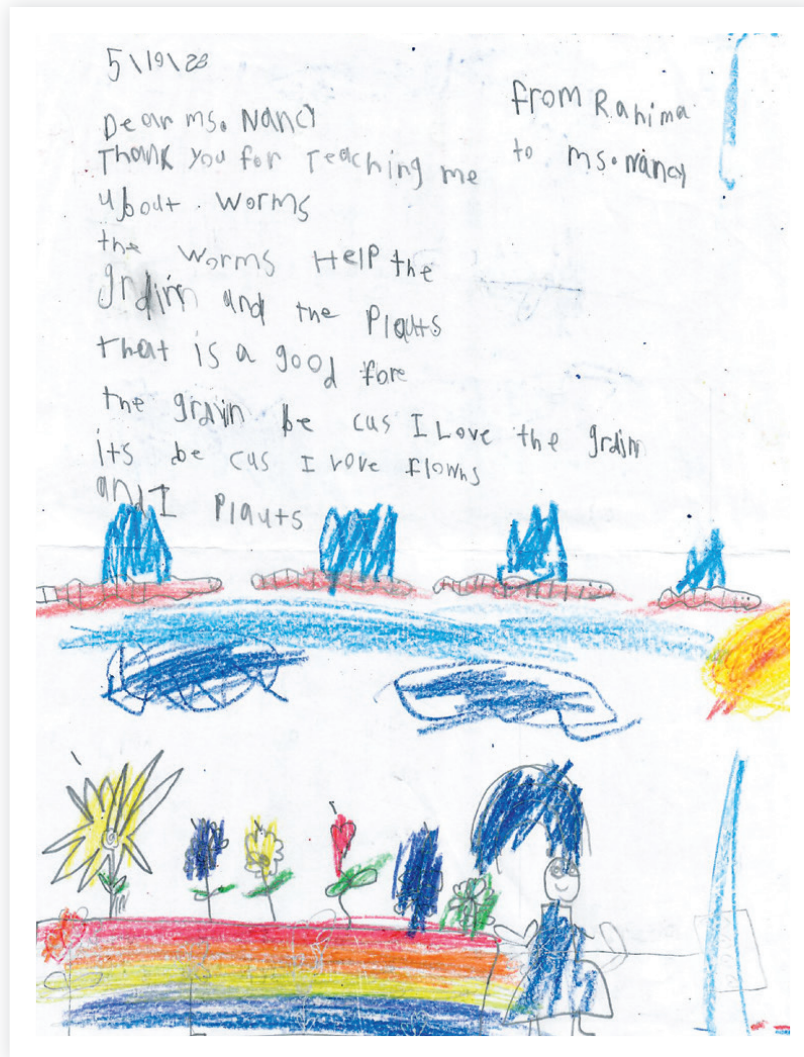 5\19\23
from Rahima
to ms. Nancy
Dear ms. Nancy
Thank you for Teaching me
about. worms
the worms Help the
grdinn and the Plauts
that is a good fore
the grdin be cus I Love the grdin
its be cus I vove flowns
and I Plauts